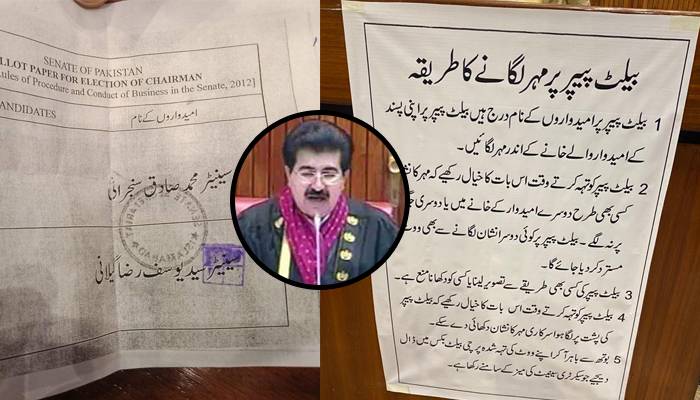 SENATE OF PAKISTAN
LLOT PAPER FOR ELECTION OF CHAIRMAN
ules of Procedure and Conduct of Business in the Senate, 2012]
ANDIDATES امیدواروں کے نام
سینیٹر محمد صادق سنجرانی
سینیٹر سید یوسف رضا گیلانی
بیلٹ پیپر پر مہر لگانے کا طریقہ
1 بیلٹ پیپر پر امیدواروں کے نام درج ہیں بیلٹ پیپر پر اپنی پسند
کے امیدوار والے خانے کے اندر مہر لگائیں۔
2 بیلٹ پیپر کو تہہ کرتے وقت اس بات کا خیال رکھیے کہ مہر کا نشا
کسی بھی طرح دوسرے امیدوار کے خانے میں یا دوسری ج
پر نہ لگے۔ بیلٹ پیپر پر کوئی دوسرا نشان لگانے سے بھی ووٹ
مسترد کر دیا جائے گا۔
3 بیلٹ پیپر کی کسی بھی طریقے سے تصویر لینا یا کسی کو دکھانا منع ہے۔
4 بیلٹ پیپر کو تہہ کرتے وقت اس بات کا خیال رکھیے کہ بیلٹ پیپر
کی پشت پر لگا ہوا سرکاری مہر کا نشان دکھائی دے سکے۔
5 بوتھ سے باہر آ کر اپنے ووٹ کی تہہ شدہ پرچی بیلٹ بکس میں ڈال
دیجیے جو سیکرٹری سینیٹ کی میز کے سامنے رکھا ہے۔